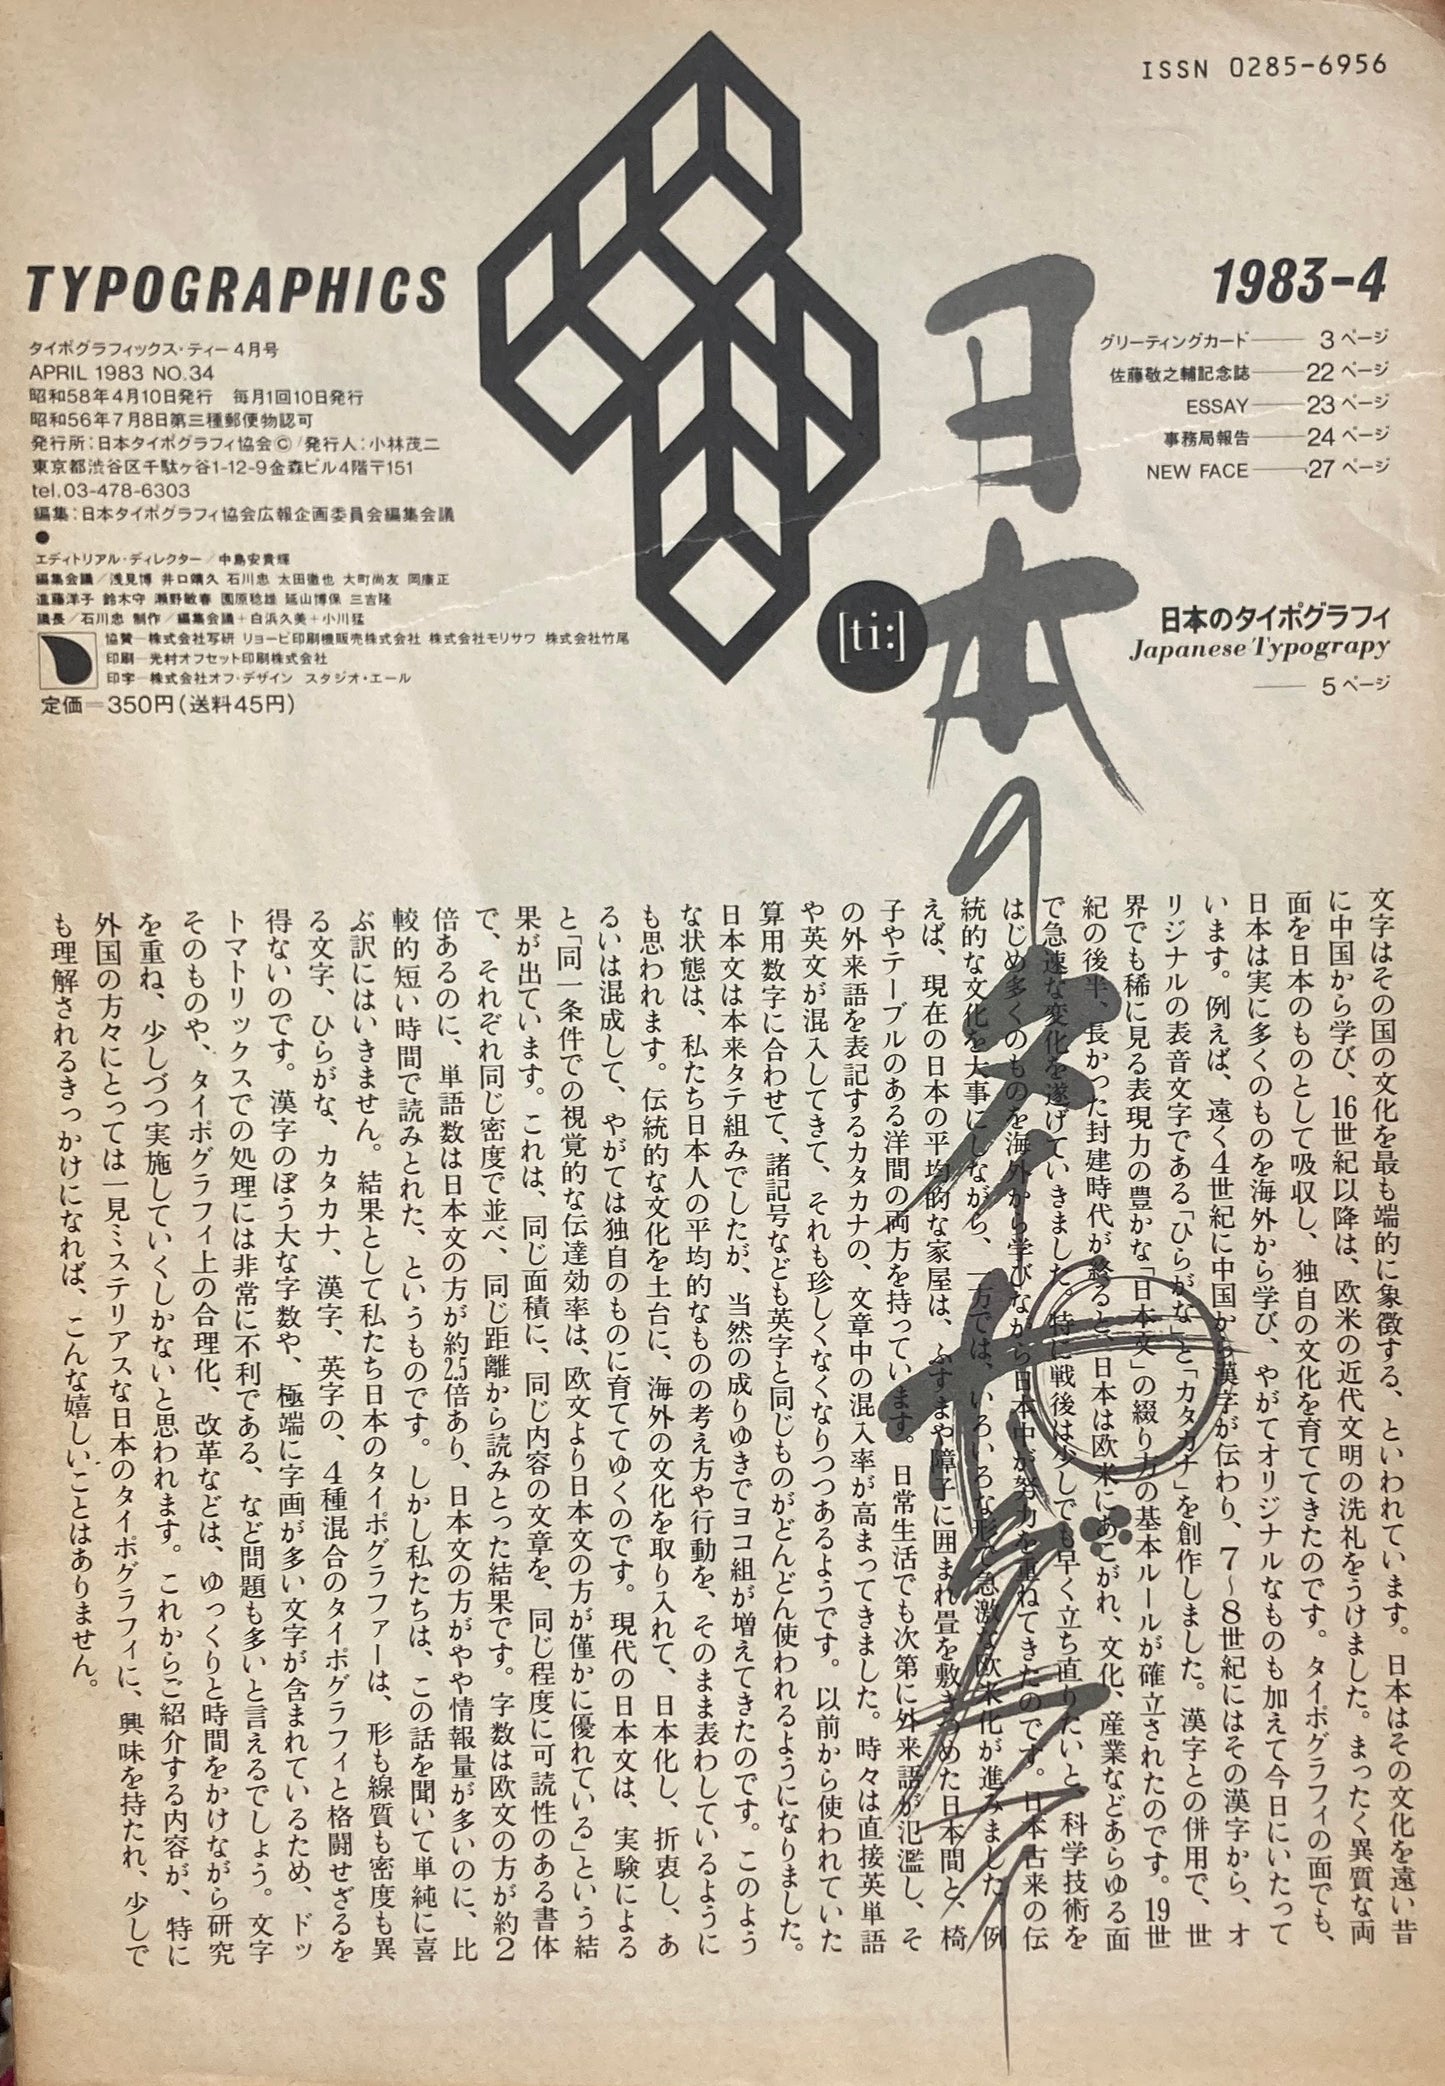 ISSN 0285-6956
TYPOGRAPHICS
タイポグラフィックス・ティー4月号
APRIL 1983 NO.34
昭和58年4月10日発行　毎月1回10日発行
昭和56年7月8日第三種郵便物認可
発行所：日本タイポグラフィ協会©/発行人：小林茂二
東京都渋谷区千駄ヶ谷1-12-9金森ビル4階〒151
tel.03-478-6303
編集：日本タイポグラフィ協会広報企画委員会編集会議
●
エディトリアル・ディレクター／中島安貴輝
編集会議／浅見博 井口靖久 石川忠 太田徹也 大町尚友 岡康正
進藤洋子 鈴木守 瀬野敏春 園原稔雄 延山博保 三吉隆
議長／石川忠 制作／編集会議＋白浜久美＋小川猛
協賛―株式会社写研 リョービ印刷機販売株式会社 株式会社モリサワ 株式会社竹尾
印刷―光村オフセット印刷株式会社
印字―株式会社オフ・デザイン　スタジオ・エール
定価＝350円(送料45円)
[ti:]
日本のタイポグラフィ
1983-4
グリーティングカード――3ページ
佐藤敬之輔記念誌――22ページ
ESSAY――23ページ
事務局報告――24ページ
NEW FACE――27ページ
日本のタイポグラフィ
Japanese Typograpy
――5ページ
文字はその国の文化を最も端的に象徴する、といわれています。日本はその文化を遠い昔
に中国から学び、16世紀以降は、欧米の近代文明の洗礼をうけました。まったく異質な両
面を日本のものとして吸収し、独自の文化を育ててきたのです。タイポグラフィの面でも、
日本は実に多くのものを海外から学び、やがてオリジナルなものも加えて今日にいたって
います。例えば、遠く4世紀に中国から漢字が伝わり、7〜8世紀にはその漢字から、オ
リジナルの表音文字である「ひらがな」と「カタカナ」を創作しました。漢字との併用で、世
界でも稀に見る表現力の豊かな「日本文」の綴り方の基本ルールが確立されたのです。19世
紀の後半、長かった封建時代が終ると、日本は欧米にあこがれ、文化、産業などあらゆる面
で急速な変化を遂げていきました。特に戦後は少しでも早く立ち直りたいと、科学技術を
はじめ多くのものを海外から学びながら日本中が努力を重ねてきたのです。日本古来の伝
統的な文化を大事にしながら、一方では、いろいろな形で急激な欧米化が進みました。例
えば、現在の日本の平均的な家屋は、ふすまや障子に囲まれ畳を敷きつめた日本間と、椅
子やテーブルのある洋間の両方を持っています。日常生活でも次第に外来語が氾濫し、そ
の外来語を表記するカタカナの、文章中の混入率が高まってきました。時々は直接英単語
や英文が混入してきて、それも珍しくなくなりつつあるようです。以前から使われていた
算用数字に合わせて、諸記号なども英字と同じものがどんどん使われるようになりました。
日本文は本来タテ組みでしたが、当然の成りゆきでヨコ組が増えてきたのです。このよう
な状態は、私たち日本人の平均的なものの考え方や行動を、そのまま表わしているように
も思われます。伝統的な文化を土台に、海外の文化を取り入れて、日本化し、折衷し、あ
るいは混成して、やがては独自のものに育ててゆくのです。現代の日本文は、実験による
と「同一条件での視覚的な伝達効率は、欧文より日本文の方が僅かに優れている」という結
果が出ています。これは、同じ面積に、同じ内容の文章を、同じ程度に可読性のある書体
で、それぞれ同じ密度で並べ、同じ距離から読みとった結果です。字数は欧文の方が約2
倍あるのに、単語数は日本文の方が約2.5倍あり、日本文の方がやや情報量が多いのに、比
較的短い時間で読みとれた、というものです。しかし私たちは、この話を聞いて単純に喜
ぶ訳にはいきません。結果として私たち日本のタイポグラファーは、形も線質も密度も異
る文字、ひらがな、カタカナ、漢字、英字の、4種混合のタイポグラフィと格闘せざるを
得ないのです。漢字のぼう大な字数や、極端に字画が多い文字が含まれているため、ドッ
トマトリックスでの処理には非常に不利である、など問題も多いと言えるでしょう。文字
そのものや、タイポグラフィ上の合理化、改革などは、ゆっくりと時間をかけながら研究
を重ね、少しづつ実施していくしかないと思われます。これからご紹介する内容が、特に
外国の方々にとっては一見ミステリアスな日本のタイポグラフィに、興味を持たれ、少しで
も理解されるきっかけになれば、こんな嬉しいことはありません。